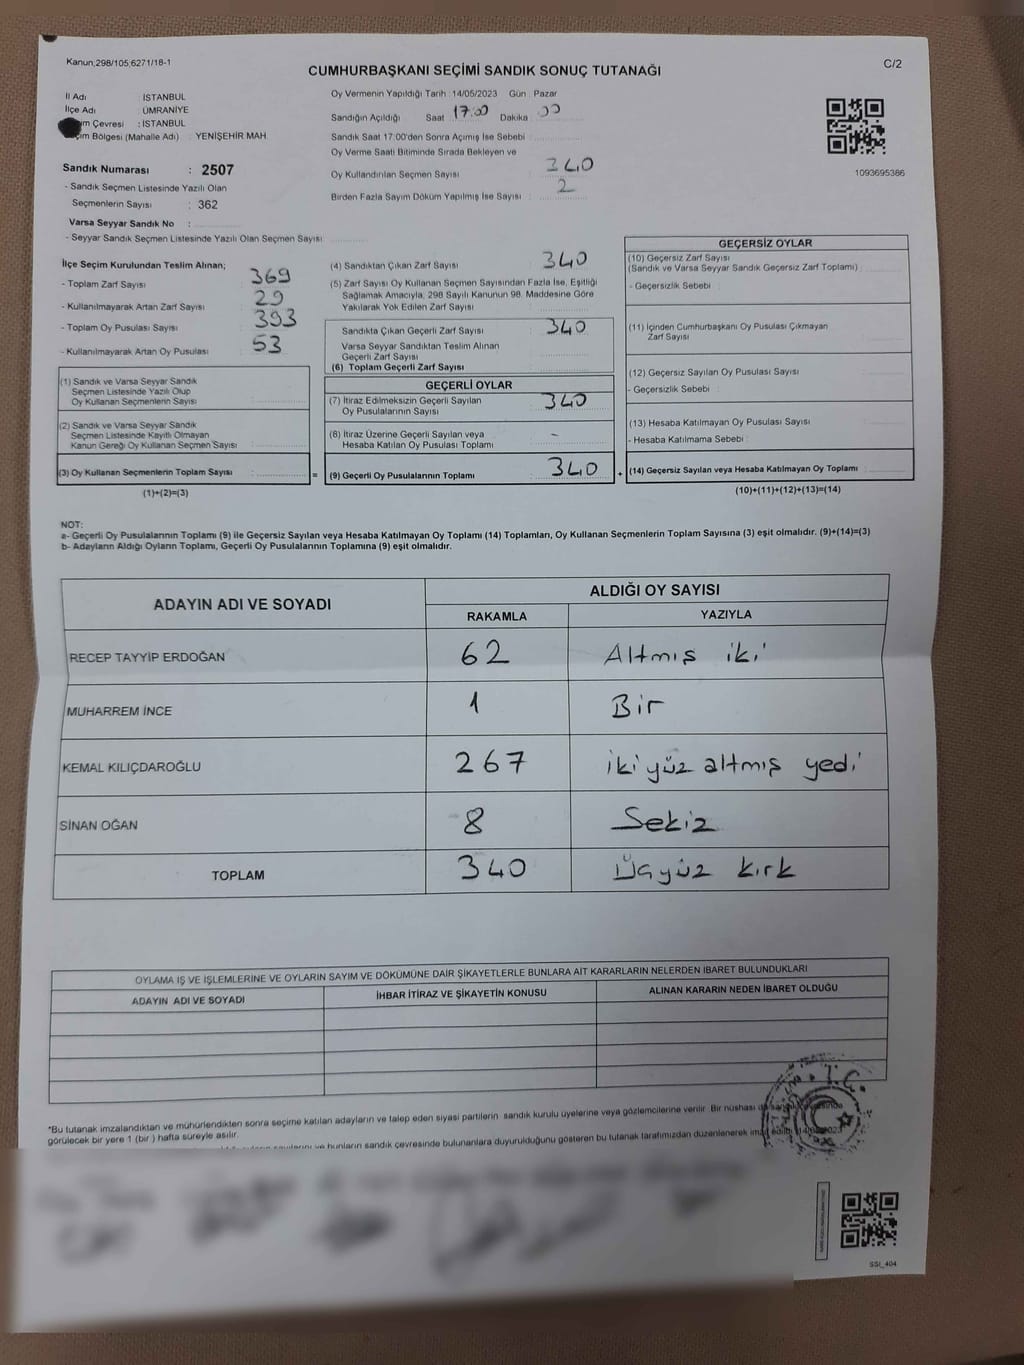 Kanun;298/105;6271/18-1
C/2
CUMHURBAŞKANI SEÇİMİ SANDIK SONUÇ TUTANAĞI
İl Adı : İSTANBUL
İlçe Adı : ÜMRANİYE
Çevresi : İSTANBUL
Bölgesi (Mahalle Adı) : YENİŞEHİR MAH
Sandık Numarası : 2507
- Sandık Seçmen Listesinde Yazılı Olan
Seçmenlerin Sayısı : 362
Varsa Seyyar Sandık No :
- Seyyar Sandık Seçmen Listesinde Yazılı Olan Seçmen Sayısı
Oy Vermenin Yapıldığı Tarih : 14/05/2023 Gün : Pazar
Sandığın Açıldığı Saat 17:00 Dakika 00
Sandık Saat 17:00'den Sonra Açılmış İse Sebebi :
Oy Verme Saati Bitiminde Sırada Bekleyen ve
Oy Kullandırılan Seçmen Sayısı : 340
Birden Fazla Sayım Döküm Yapılmış İse Sayısı : 2
1093695386
İlçe Seçim Kurulundan Teslim Alınan;
- Toplam Zarf Sayısı : 369
- Kullanılmayarak Artan Zarf Sayısı : 29
- Toplam Oy Pusulası Sayısı : 393
- Kullanılmayarak Artan Oy Pusulası : 53
(1) Sandık ve Varsa Seyyar Sandık
Seçmen Listesinde Yazılı Olup
Oy Kullanan Seçmenlerin Sayısı :
(2) Sandık ve Varsa Seyyar Sandık
Seçmen Listesinde Kayıtlı Olmayan
Kanun Gereği Oy Kullanan Seçmen Sayısı :
(3) Oy Kullanan Seçmenlerin Toplam Sayısı :
(1)+(2)=(3)
(4) Sandıktan Çıkan Zarf Sayısı : 340
(5) Zarf Sayısı Oy Kullanan Seçmen Sayısından Fazla İse, Eşitliği
Sağlamak Amacıyla, 298 Sayılı Kanunun 98. Maddesine Göre
Yakılarak Yok Edilen Zarf Sayısı :
Sandıkta Çıkan Geçerli Zarf Sayısı : 340
Varsa Seyyar Sandıktan Teslim Alınan
Geçerli Zarf Sayısı :
(6) Toplam Geçerli Zarf Sayısı :
GEÇERLİ OYLAR
(7) İtiraz Edilmeksizin Geçerli Sayılan
Oy Pusulalarının Sayısı : 340
(8) İtiraz Üzerine Geçerli Sayılan veya
Hesaba Katılan Oy Pusulası Toplamı : -
= (9) Geçerli Oy Pusulalarının Toplamı : 340 +
GEÇERSİZ OYLAR
(10) Geçersiz Zarf Sayısı
(Sandık ve Varsa Seyyar Sandık Geçersiz Zarf Toplamı) :
- Geçersizlik Sebebi :
(11) İçinden Cumhurbaşkanı Oy Pusulası Çıkmayan
Zarf Sayısı :
(12) Geçersiz Sayılan Oy Pusulası Sayısı :
- Geçersizlik Sebebi :
(13) Hesaba Katılmayan Oy Pusulası Sayısı :
- Hesaba Katılmama Sebebi :
(14) Geçersiz Sayılan veya Hesaba Katılmayan Oy Toplamı :
(10)+(11)+(12)+(13)=(14)
NOT:
a- Geçerli Oy Pusulalarının Toplamı (9) ile Geçersiz Sayılan veya Hesaba Katılmayan Oy Toplamı (14) Toplamları, Oy Kullanan Seçmenlerin Toplam Sayısına (3) eşit olmalıdır. (9)+(14)=(3)
b- Adayların Aldığı Oyların Toplamı, Geçerli Oy Pusulalarının Toplamına (9) eşit olmalıdır.
ADAYIN ADI VE SOYADI ALDIĞI OY SAYISI
RAKAMLA YAZIYLA
RECEP TAYYİP ERDOĞAN 62 Altmış iki
MUHARREM İNCE 1 Bir
KEMAL KILIÇDAROĞLU 267 iki yüz altmış yedi
SİNAN OĞAN 8 Sekiz
TOPLAM 340 Üçyüz kırk
OYLAMA İŞ VE İŞLEMLERİNE VE OYLARIN SAYIM VE DÖKÜMÜNE DAİR ŞİKAYETLERLE BUNLARA AİT KARARLARIN NELERDEN İBARET BULUNDUKLARI
ADAYIN ADI VE SOYADI İHBAR İTİRAZ VE ŞİKAYETİN KONUSU ALINAN KARARIN NEDEN İBARET OLDUĞU
*Bu tutanak imzalandıktan ve mühürlendikten sonra seçime katılan adayların ve talep eden siyasi partilerin sandık kurulu üyelerine veya gözlemcilerine verilir. Bir nüshası da
görülecek bir yere 1 (bir) hafta süreyle asılır.
ve bunların sandık çevresinde bulunanlara duyurulduğunu gösteren bu tutanak tarafımızdan düzenlenerek
T.C.
SSI_404